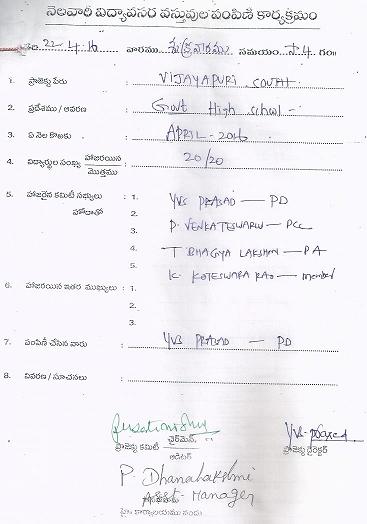 నెలవారి విద్యావసర వస్తువుల పంపిణి కార్యక్రమం
తేది 22-4-16 వారము శుక్రవారము సమయం సా.4 గం॥
1. ప్రాజెక్టు పేరు : VIJAYAPURI SOUTH
2. ప్రదేశము / ఆవరణ : Govt High school
3. ఏ నెల కొఱకు : APRIL-2016
4. విద్యార్థుల సంఖ్య హాజరయిన / మొత్తము : 20/20
5. హాజరైన కమిటీ సభ్యులు : 1. YVS PRASAD — PD
హోదాతో 2.
3. P. VENKATESWARLU — PCC
4. T BHAGYA LAKSHMI — PA
5. K. KOTESWARA RAO — member
6. హాజరయిన ఇతర ముఖ్యులు : 1.
2.
3.
7. పంపిణీ చేసిన వారు : YVS PRASAD — PD
8. వివరణ / సూచనలు :
ప్రాజెక్టు కమిటీ చైర్‌మెన్,
ఆడిటర్
ప్రాజెక్టు డైరెక్టర్
P. Dhanalakshmi
Asst-Manager
హై కార్యాలయము నందు